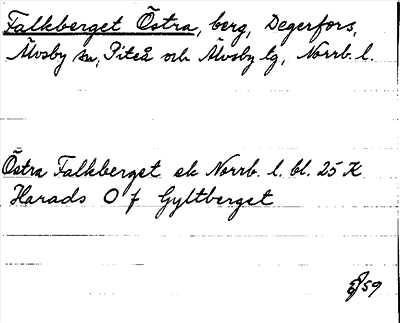 Falkberget Östra, berg, Degerfors,
Älvsby sn, Piteå och Älvsby tg, Norrb. l.
Östra Falkberget ek Norrb. l. bl. 25 K
Harads O f Gyltberget
59